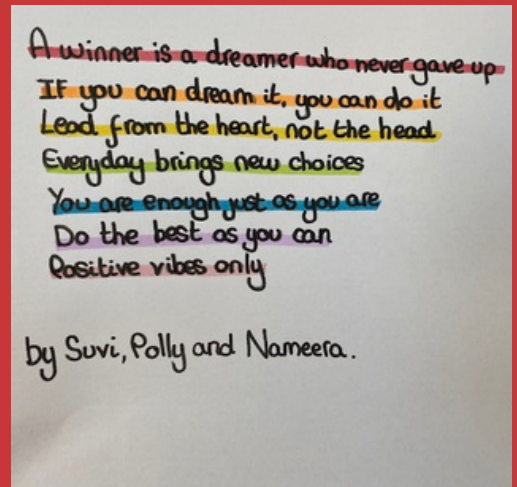 A winner is a dreamer who never gave up
If you can dream it, you can do it
Lead from the heart, not the head
Everyday brings new choices
You are enough just as you are
Do the best as you can
Positive vibes only
by Suvi, Polly and Nameera.